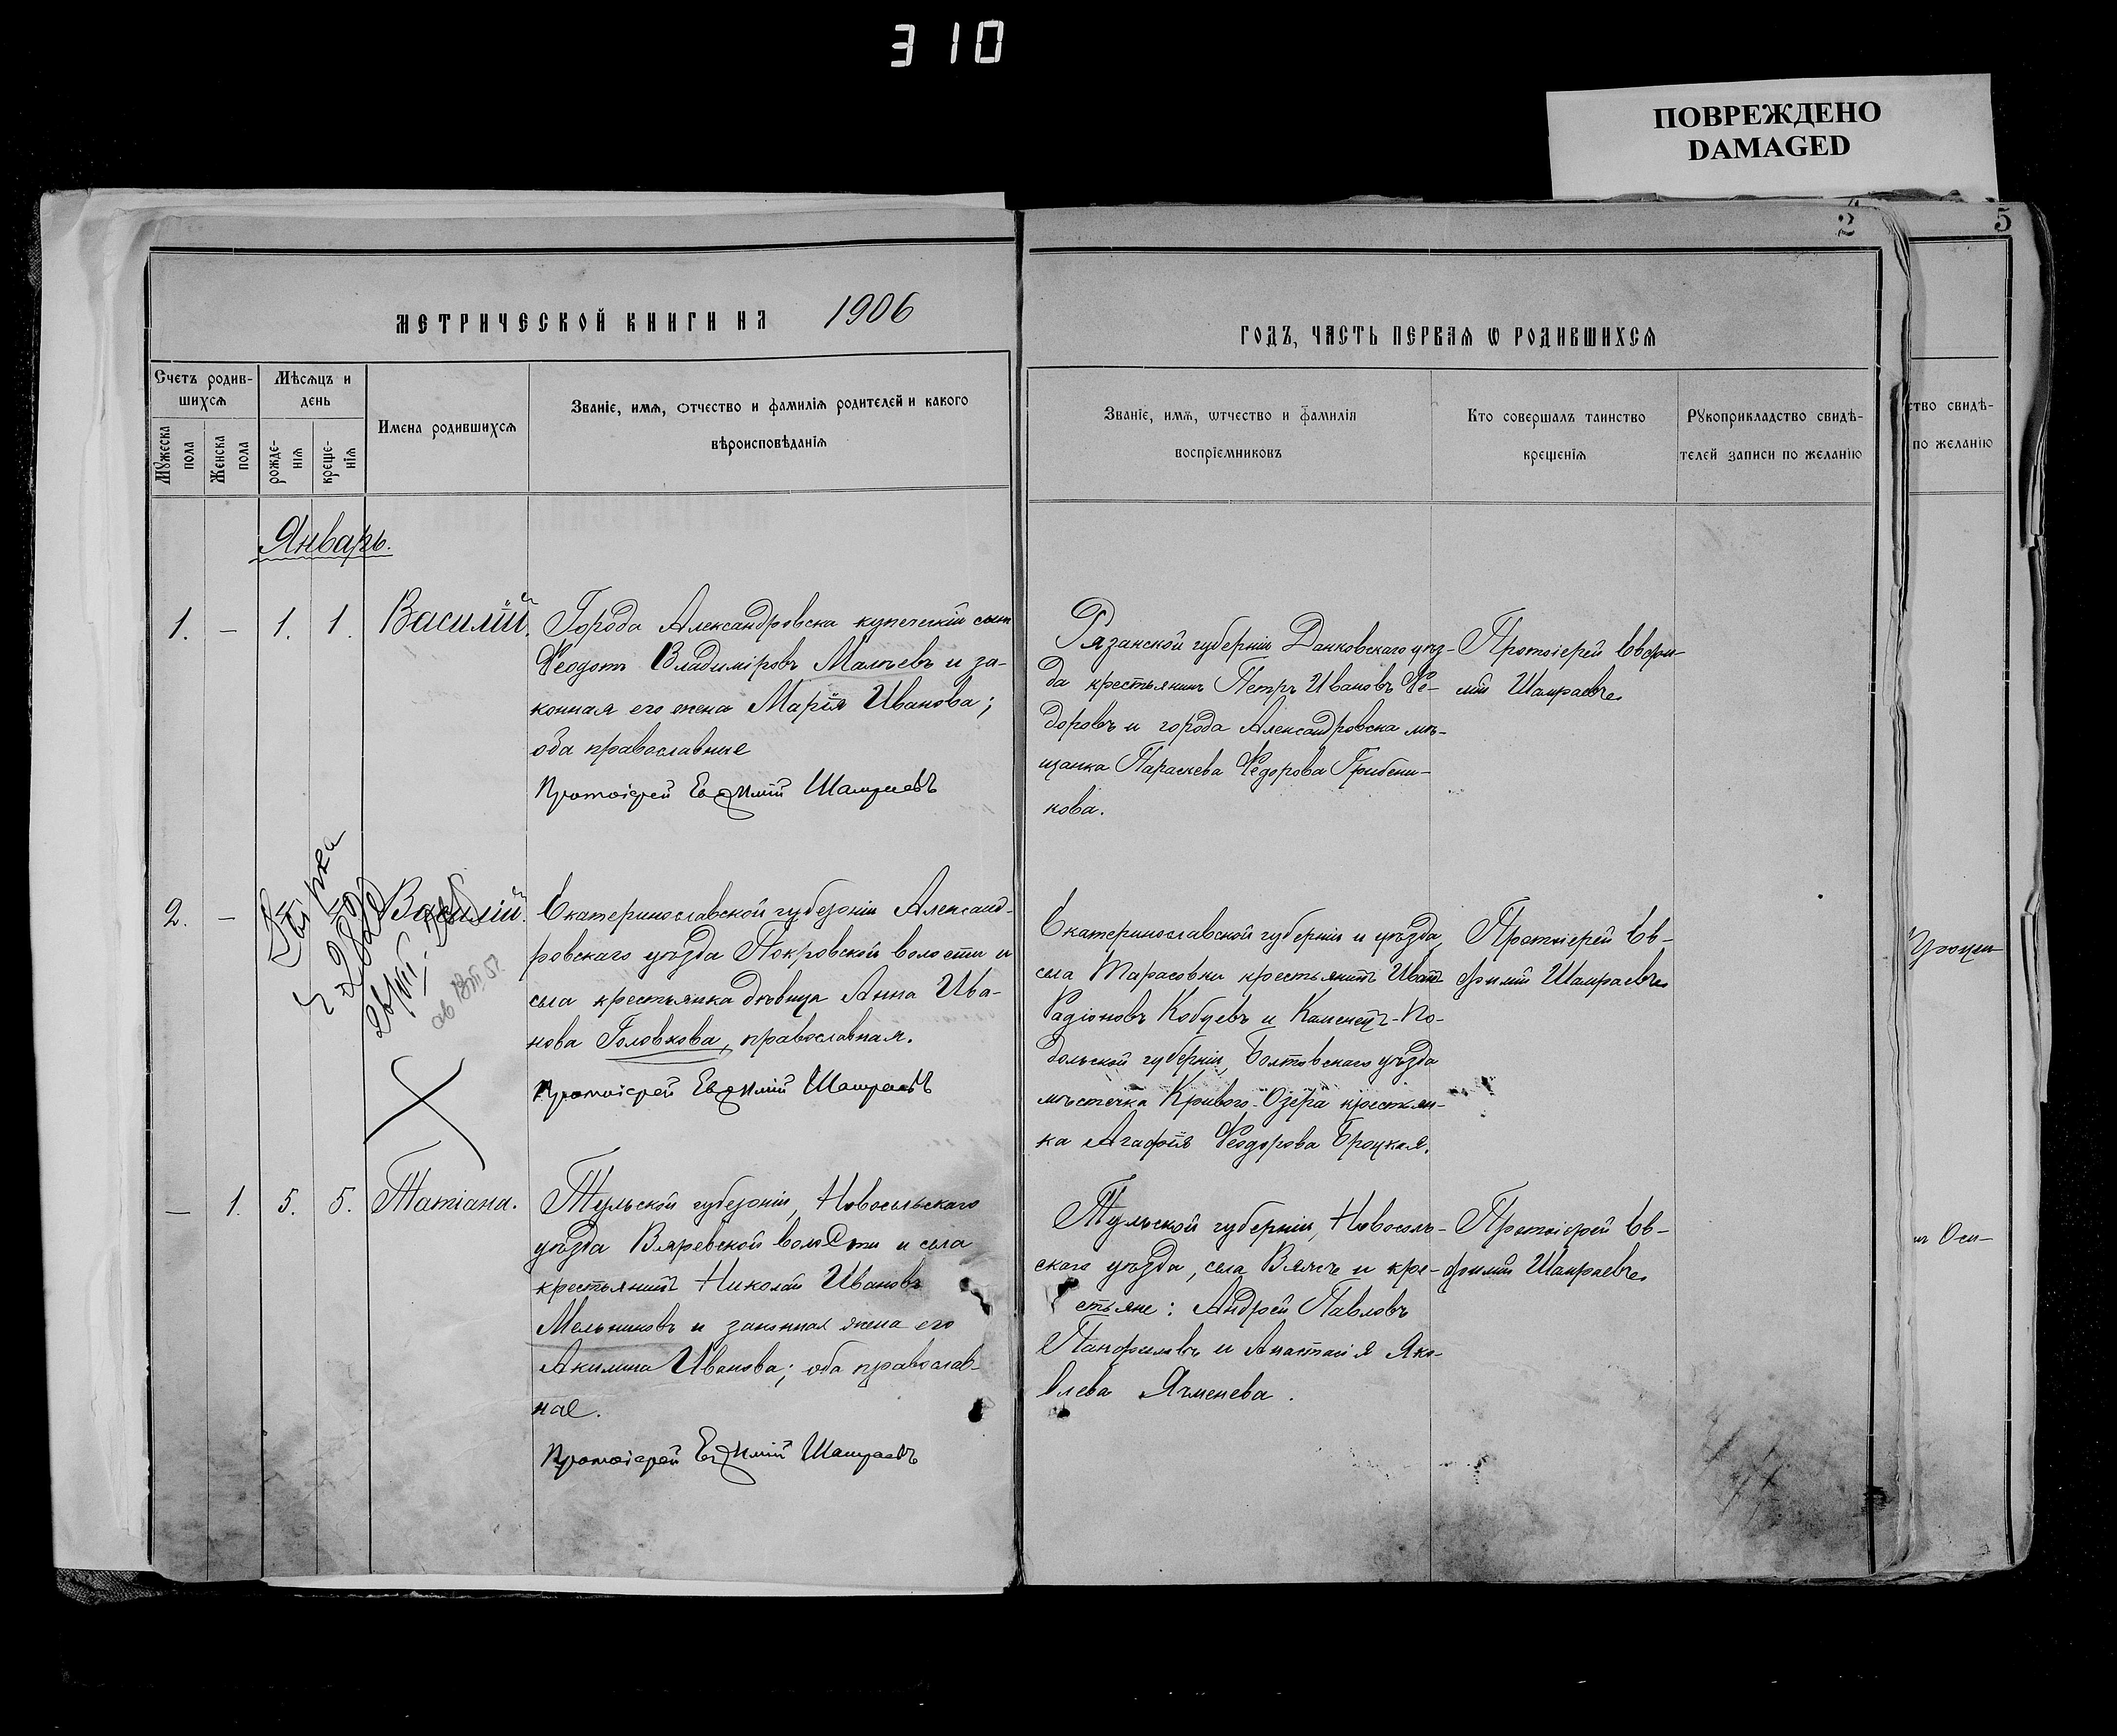 310
ПОВРЕЖДЕНО
DAMAGED
2
5
МЕТРИЧЕСКОЙ КНИГИ НА 1906
ГОДЪ, ЧАСТЬ ПЕРВАЯ Ѡ РОДИВШИХСЯ
Счетъ родив-
шихся
Мѣсяцъ и
день
Мужеска
пола
Женска
пола
рожде-
нія
креще-
нія
Имена родившихся
Званіе, имя, отчество и фамилія родителей и какого
вѣроисповѣданія
Званіе, имя, ѡтчество и фамилія
воспріемниковъ
Кто совершалъ таинство
крещенія
Рукоприкладство свидѣ-
телей записи по желанію
ство свидѣ-
по желанію
Январь.
1. — 1. 1. Василій.
Города Александровска купеческій сынъ
Ѳеодотъ Владиміровъ Малѣевъ и за-
конная его жена Марія Иванова;
оба православные
Протоіерей Евѳимій Шамраевъ
Рязанской губерніи Данковскаго уѣз-
да крестьянинъ Петръ Ивановъ Ѳе-
доровъ и города Александровска мѣ-
щанка Параскева Ѳедорова Грибени-
кова.
Протоіерей Евфи-
мій Шамраевъ.
2. — Василій.
Екатеринославской губерніи Александ-
ровскаго уѣзда Покровской волости и
села крестьянка дѣвица Анна Ива-
нова Головкова, православная.
Протоіерей Евѳимій Шамраевъ
Екатеринославской губерніи и уѣзда,
села Тарасовки крестьянинъ Иванъ
Радіоновъ Кобцевъ и Каменецъ-По-
дольской губерніи, Болтовскаго уѣзда
мѣстечка Кривого-Озера крестьян-
ка Агафія ѲеодороваБроцкая.
Протоіерей Ев-
фимій Шамраевъ.
— 1. 5. 5. Татіана.
Тульской губерніи, Новосильскаго
уѣзда Вяжевской волости и села
крестьянинъ Николай Ивановъ
Мельниковъ и законная жена его
Акилина Иванова; оба православ-
ные.
Протоіерей Евѳимій Шамраевъ
Тульской губерніи, Новосиль-
скаго уѣзда, села Вяжъ и кре-
стьяне: Андрей Павловъ
Панфиловъ и Анастасія Яко-
влева Ячменева.
Протоіерей Ев-
фимій Шамраевъ.